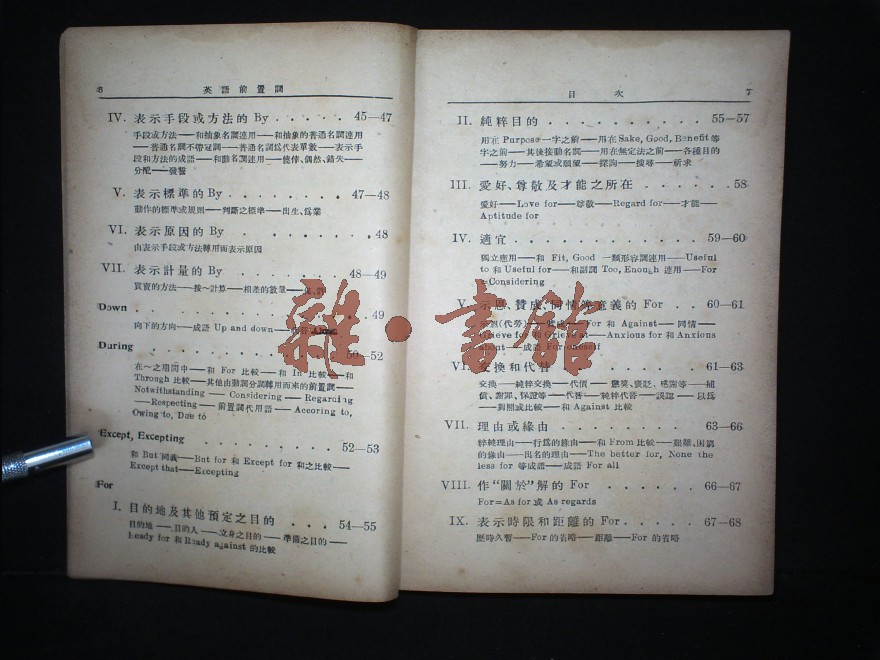 6 英語前置詞
IV. 表示手段或方法的 By . . . . . 45—47
手段或方法——和抽象名詞連用——和抽象的普通名詞連用
——普通名詞不帶冠詞——普通名詞爲代表單數——表示手
段和方法的成語——和動名詞連用——能倖、偶然、錯失——
分配——發誓
V. 表示標準的 By . . . . . . . . 47—48
動作的標準或規則——判斷之標準——出生、爲業
VI. 表示原因的 By . . . . . . . . 48
由表示手段或方法轉用而表示原因
VII. 表示計量的 By . . . . . . . 48—49
買賣的方法——按～計算——相差的數量——
Down . . . . . . . . . . 49
向下的方向——成語 Up and down——
During . . . . . . . . . 50—52
在～之期間中——和 For 比較——和 In 比較——和
Through 比較——其他由動詞分詞轉用而來的前置詞——
Notwithstanding——Considering——Regarding
——Respecting——前置詞代用語——Accoring to,
Owing to, Due to
Except, Excepting . . . . . . . . 52—53
和 But 同義——But for 和 Except for 和之比較——
Except that——Excepting
For
I. 目的地及其他預定之目的 . . . . 54—55
目的地——目的人——立身之目的——準備之目的——
Ready for 和 Ready against 的比較
目次 7
II. 純粹目的 . . . . . . . . . . 55—57
用在 Purpose 一字之前——用在 Sake, Good, Benefit 等
字之前——其後接動名詞——用在無定法之前——各種目的
——努力——希望或願望——探詢——搜尋——祈求
III. 愛好、尊敬及才能之所在 . . . . . . . 58
愛好——Love for——尊敬——Regard for——才能——
Aptitude for
IV. 適宜 . . . . . . . . . . . . 59—60
獨立應用——和 Fit, Good 一類形容詞連用——Useful
to 和 Useful for——和副詞 Too, Enough 連用——For
=Considering
V. 示恩、贊成、同情等意義的 For . . 60—61
示恩(代勞)——贊成——For 和 Against——同情——
Grieve for 和 Grieve at——Anxious for 和 Anxious
about——成語 For oneself
VI. 交換和代替 . . . . . . . . . 61—63
交換——純粹交換——代價——懲獎、褒貶、感謝等——補
償、謝罪、保證等——代替——純粹代替——誤認——以爲
——對照或比較——和 Against 比較
VII. 理由或緣由 . . . . . . . . . 63—66
粹純理由——行爲的緣由——和 From 比較——艱難、困窮
的緣由——出名的理由——The better for, None the
less for 等成語——成語 For all
VIII. 作“關於”解的 For . . . . . . . 66—67
For=As for 或 As regards
IX. 表示時限和距離的 For . . . . . . 67—68
歷時久暫——For 的省略——距離——For 的省略
雜·書館